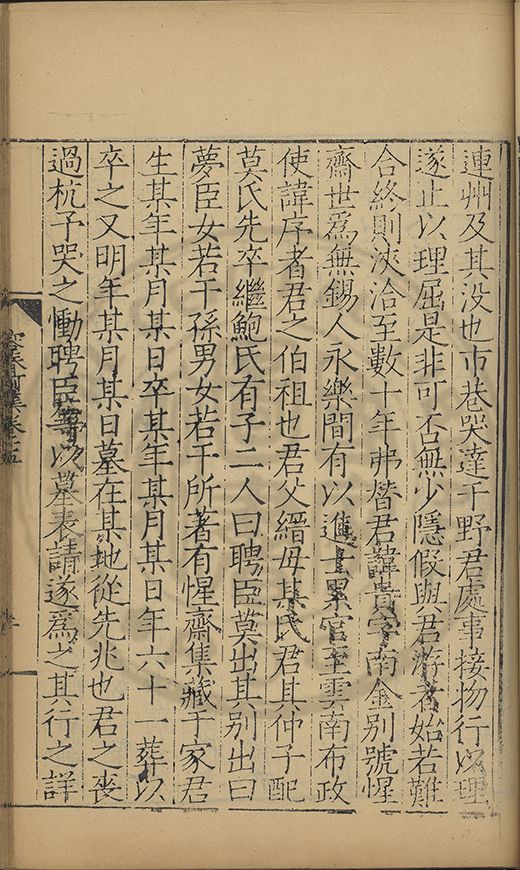 連州及其没也市巷哭達于野君處事接物行以理
遂止以理屈是非可否無少隱假與君游者始若難
合終則浹洽至數十年弗替君諱貴字南金别號惺
齋世爲無錫人永樂間有以進士累官至雲南布政
使諱序者君之伯祖也君父縉母某氏君其仲子配
莫氏先卒繼鮑氏有子二人曰聘臣莫出其别出曰
夢臣女若干孫男女若干所著有惺齋集藏于家君
生某年某月某日卒某年某月某日年六十一葬以
卒之又明年某月某日墓在某地從先兆也君之喪
過杭予哭之慟聘臣等以墓表請遂爲之其行之詳